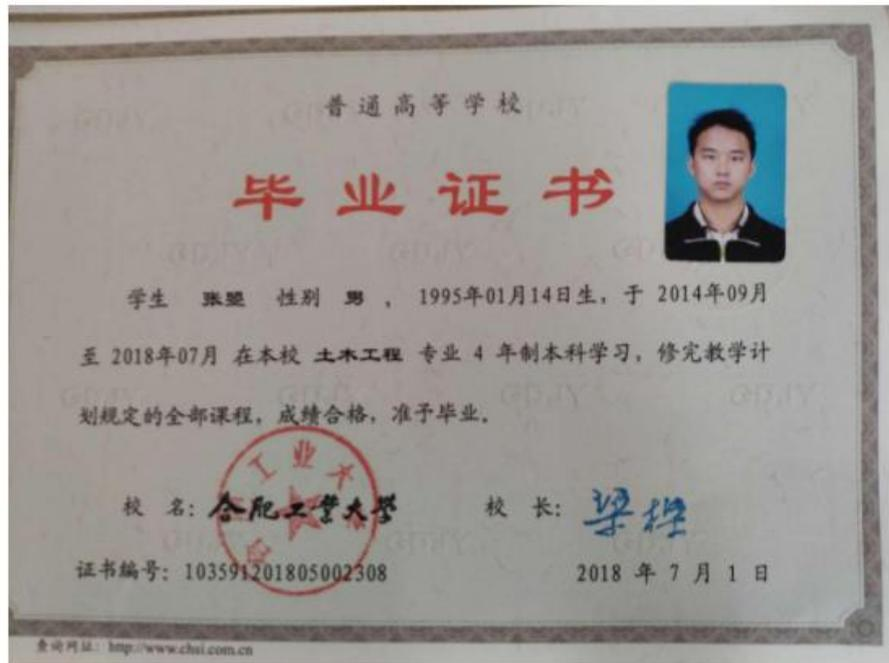 普通高等学校
毕业证书
学生 张翌 性别 男 ，1995年01月14日生，于 2014年09月
至 2018年07月 在本校 土木工程 专业 4 年制本科学习，修完教学计
划规定的全部课程，成绩合格，准予毕业。
校 名：合肥工业大学 校 长：梁樑
工业大
证书编号：103591201805002308 2018 年 7 月 1 日
查询网址：http://www.chsi.com.cn